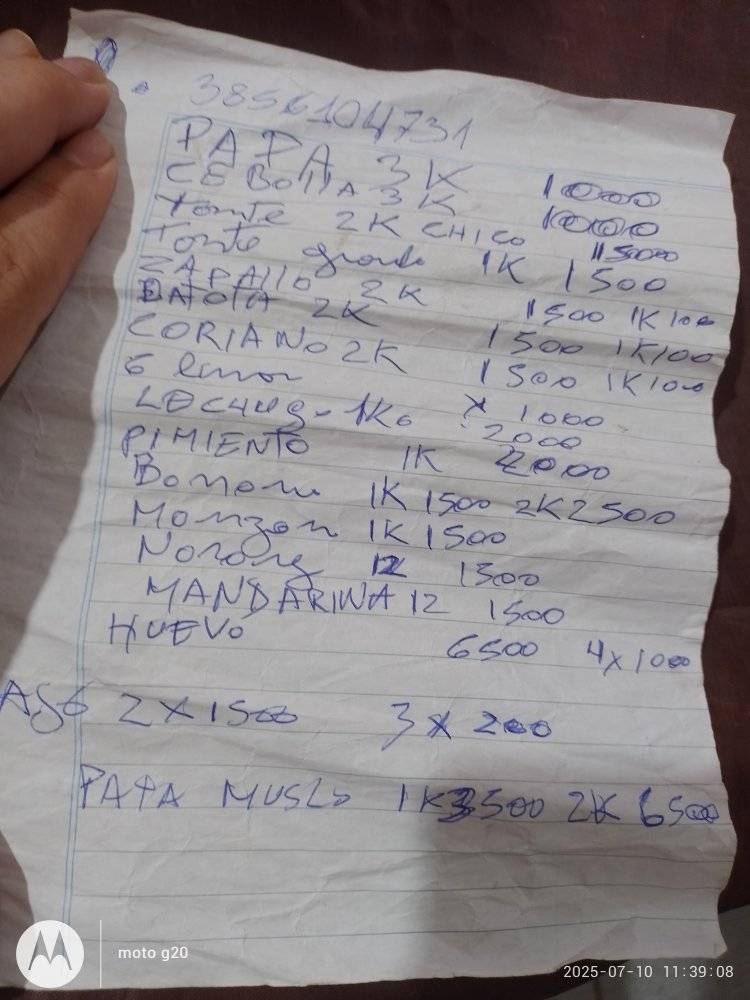 3856104731
PAPA 3K 1000
CEBOllA 3K 1000
Tomte 2K CHico 1500
Tomte grande 1K 1500
ZAPAllo 2K 1500 1K 100
BATATA 2K 1500 1K100
CORIANO 2K 1500 1K100
6 limon x 1000
LECHUg- 1K 2000
PIMIENTO 1K 2000
Banana 1K 1500 2K2500
Monzan 1K 1500
Norong 12 1500
MANDARINA 12 1500
HUEVO 6500 4x1000
AJO 2X1500 3x200
PATA MUSLO 1K3500 2K 6500
moto g20
2025-07-10 11:39:08